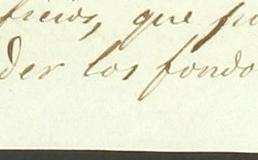 ficios, que p
der los fondo